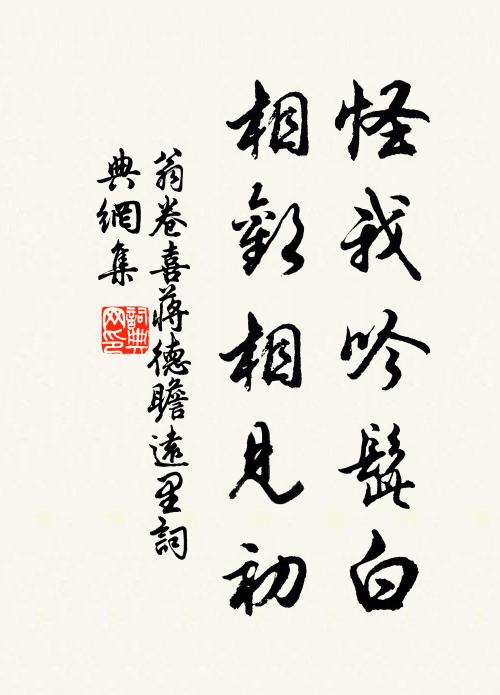 怪我吟髭白
相歡相見初
翁卷喜蔣德瞻遠里詞
典網集
詞典
网印